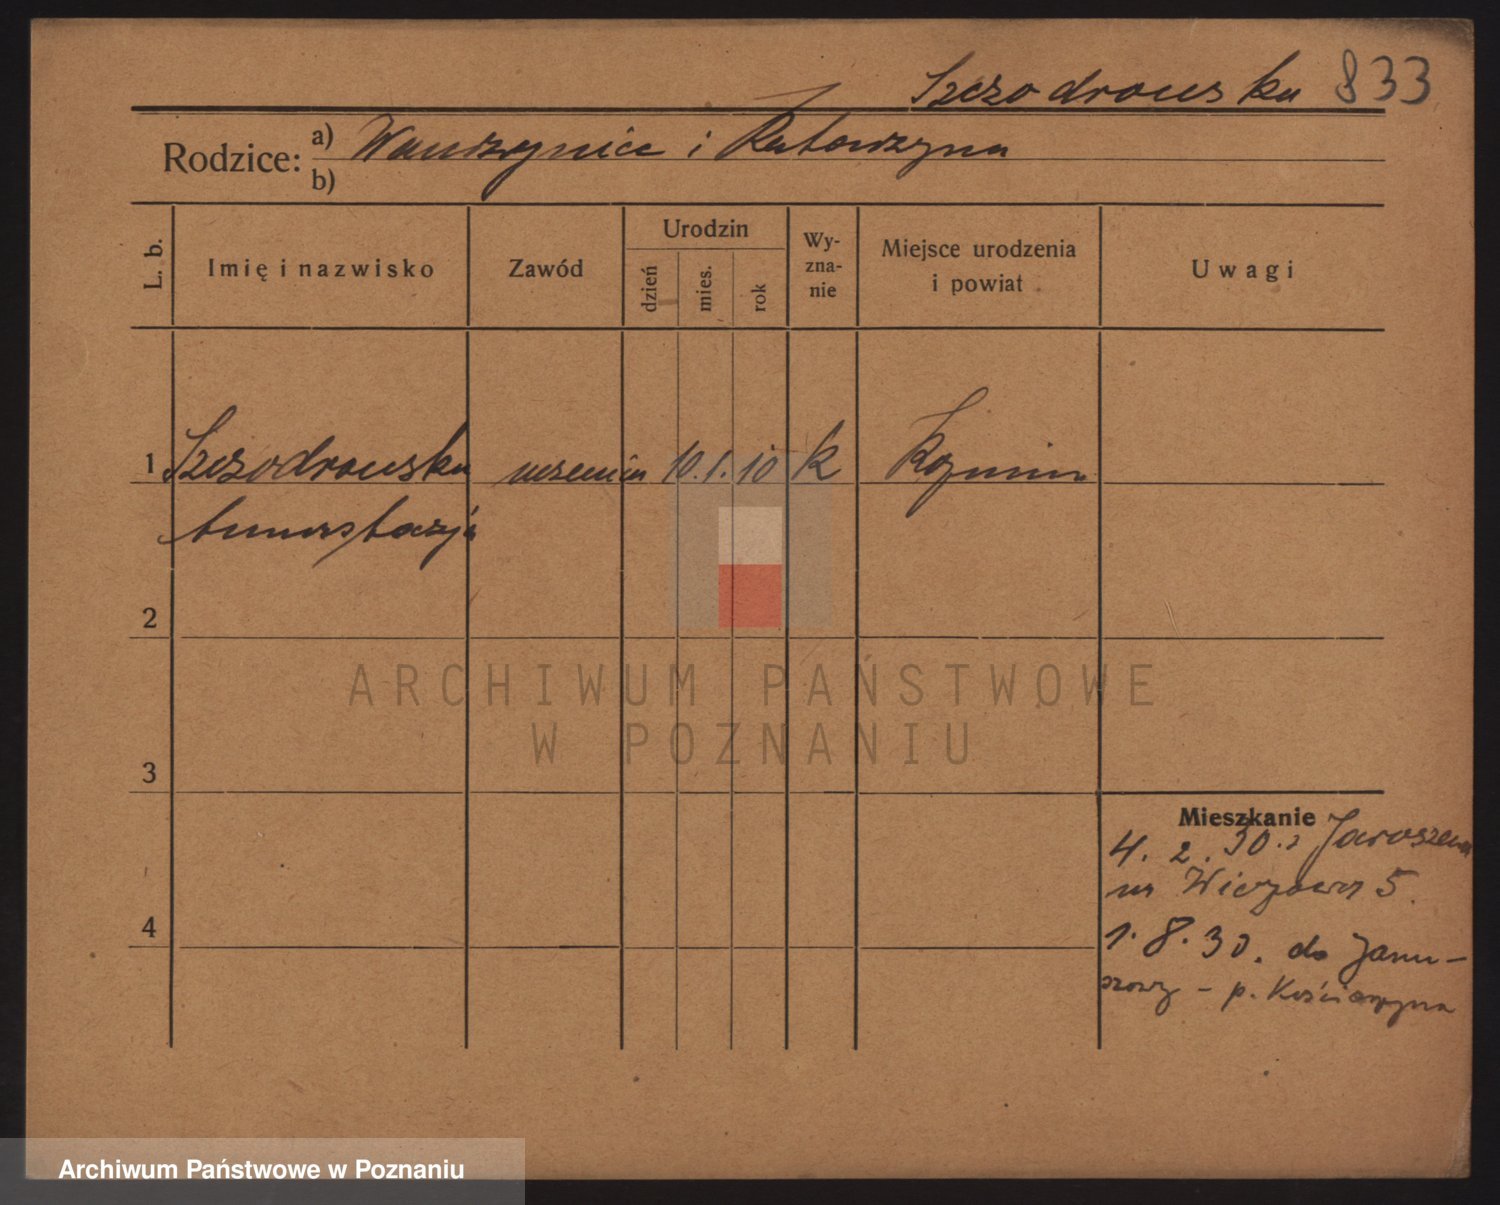 Szczodrowska 833
Rodzice: a) Wawrzyniec i Katarzyna
b)
L. b. Imię i nazwisko Zawód Urodzin dzień mies. rok Wy-zna-nie Miejsce urodzenia i powiat Uwagi
1 Szczodrowska uczenica 10. 1. 10 k Koźmin
Anastazja
2
3
4
Mieszkanie
4. 2. 30. z
na 5.
1. 8. 30. do
p.
ARCHIWUM PAŃSTWOWE
W POZNANIU
Archiwum Państwowe w Poznaniu